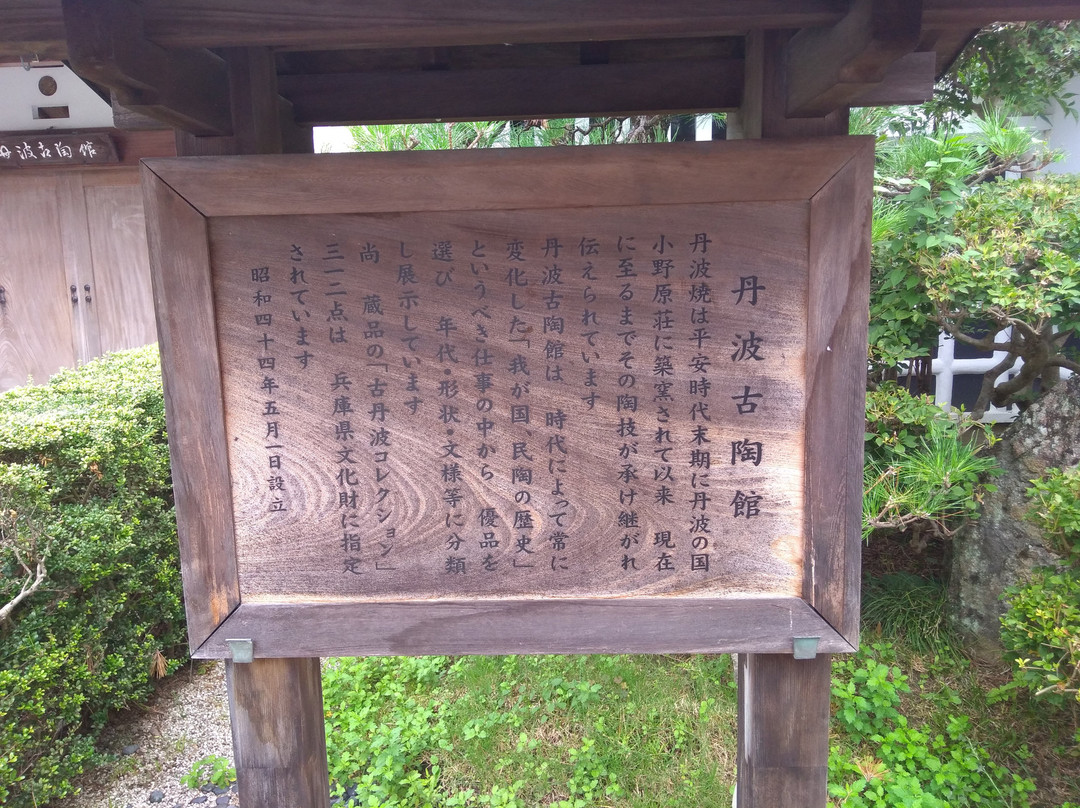 丹波古陶館
丹波焼は平安時代末期に丹波の国
小野原荘に築窯されて以来　現在
に至るまでその陶技が承け継がれ
伝えられています
丹波古陶館は　時代によって常に
変化した「我が国　民陶の歴史」
というべき仕事の中から　優品を
選び　年代・形状・文様等に分類
し展示しています
尚　蔵品の「古丹波コレクション」
三一二点は　兵庫県文化財に指定
されています
昭和四十四年五月一日設立
丹波古陶館